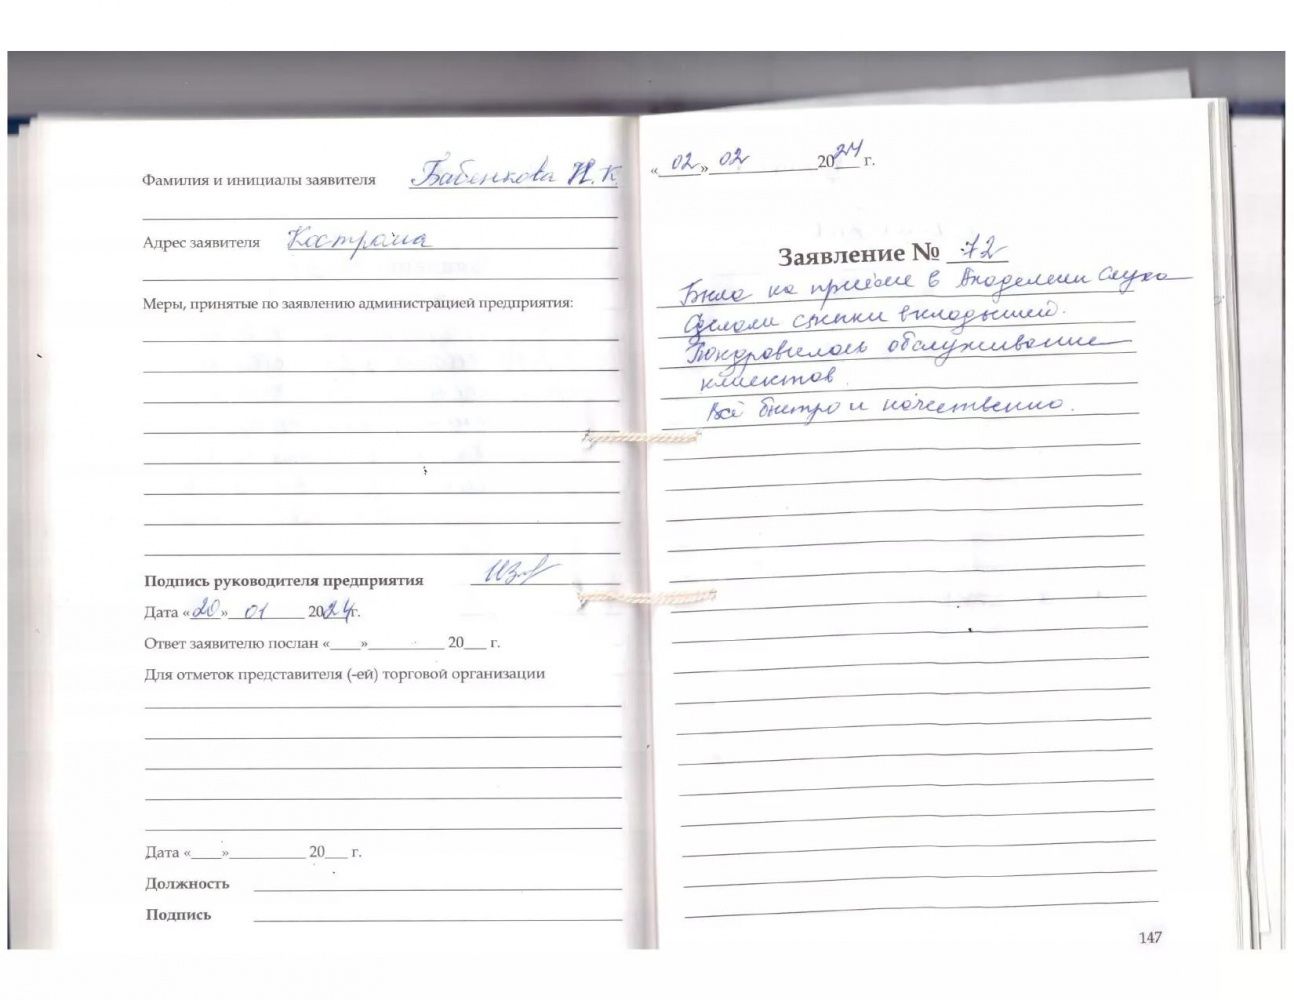 Фамилия и инициалы заявителя Бабенкова Н. К.
Адрес заявителя Кострома
Меры, принятые по заявлению администрацией предприятия:
Подпись руководителя предприятия
Дата «20» 01 2024г.
Ответ заявителю послан «____»__________ 20___ г.
Для отметок представителя (-ей) торговой организации
Дата «____»__________ 20___ г.
Должность
Подпись
«02» 02 2024 г.
Заявление № 72
Была на приёме в Академии Слуха
Сделали слепки вкладышей.
Понравилось обслуживание
клиентов.
Всё быстро и качественно.
147